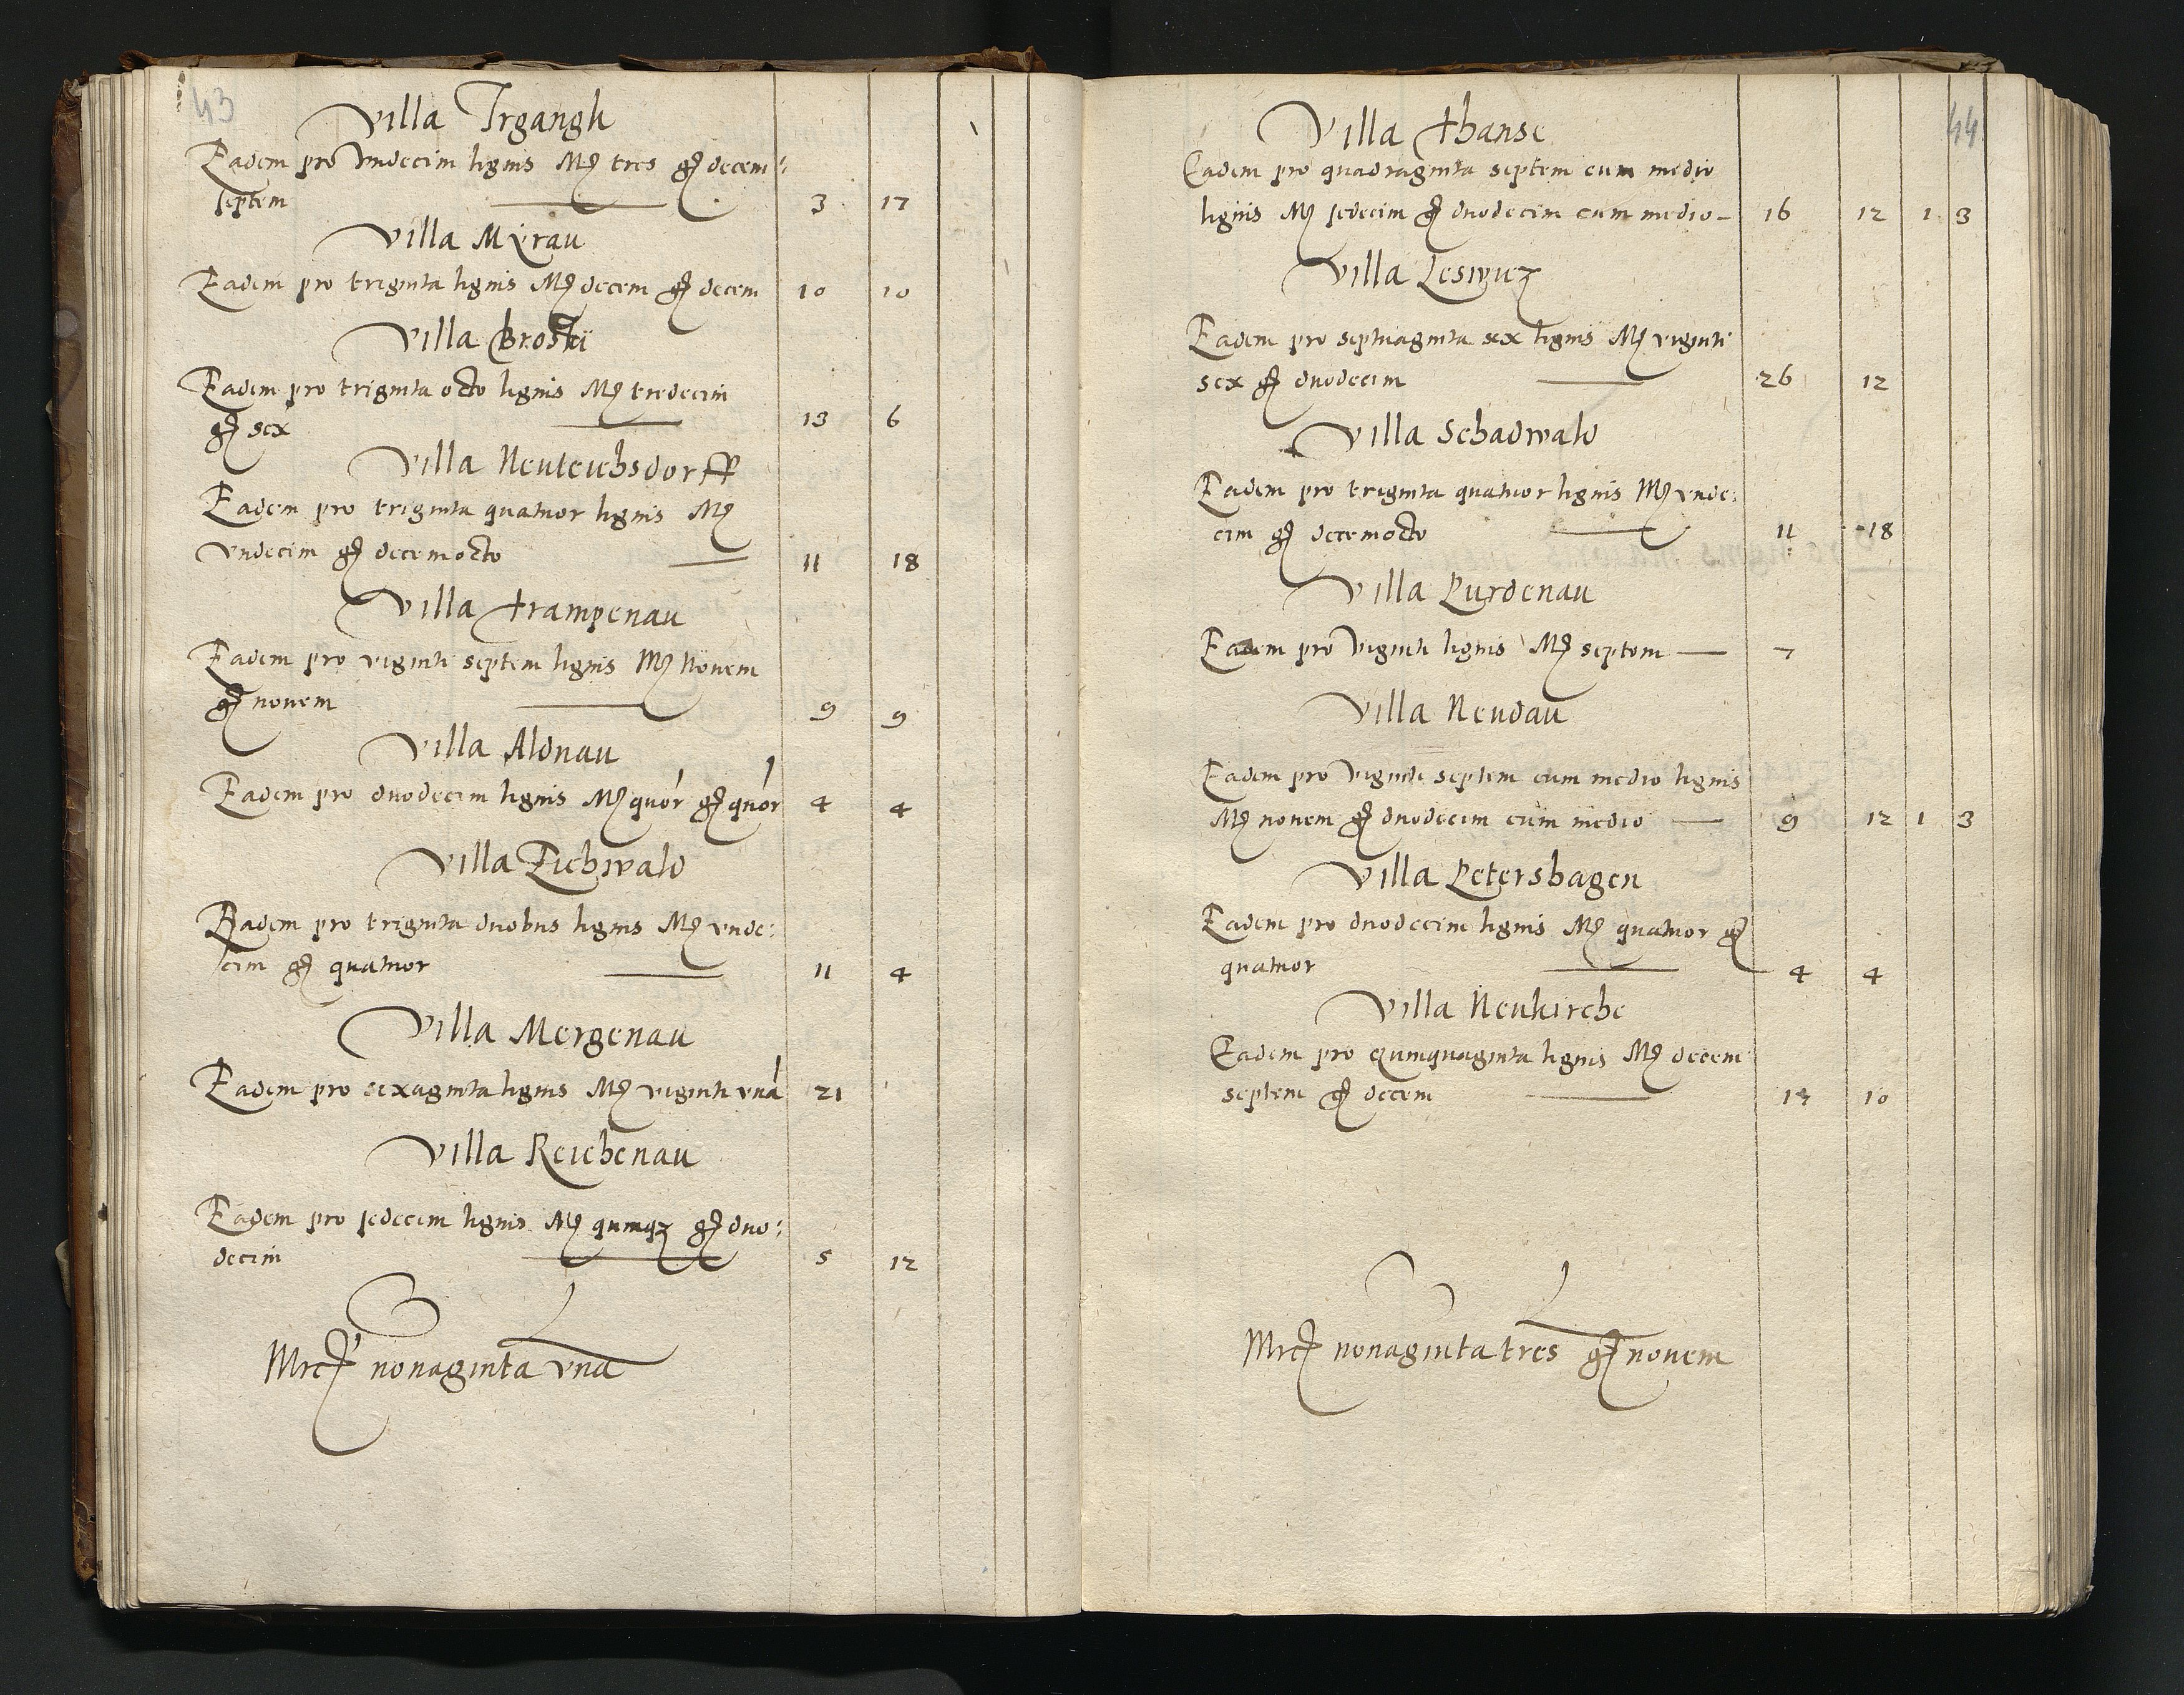 43
Villa Irgangh
Eadem pro Vndecim lignis Mr tres gr decem:
septem 3 17
Villa Mÿrau
Eadem pro triginta lignis Mr decem gr decem 10 10
Villa Broskÿ
Eadem pro triginta octo lignis Mr tredecim
gr sex 13 6
Villa Neuteichsdorff
Eadem pro triginta quatuor lignis Mr
Vndecim gr decemocto 11 18
Villa Trampenau
Eadem pro viginti septem lignis Mr Nouem
gr nouem 9 9
Villa Aldnau
Eadem pro duodecim lignis Mr quor gr quor 4 4
Villa Eichwald
Eadem pro triginta duobus lignis Mr vnde:
cim gr quatuor 11 4
Villa Mergenau
Eadem pro sexaginta lignis Mr viginti vna 21
Villa Reichenau
Eadem pro sedecim lignis Mr quinqz gr duo:
decim 5 12
Mrc nonaginta vna
44
Villa Thanse
Eadem pro quadraginta septem cum medio
lignis Mr sedecim gr duodecim cum medio 16 12 1 3
Villa Leswicz
Eadem pro septuaginta sex lignis Mr viginti
sex gr duodecim 26 12
Villa Schadwald
Eadem pro triginta quatuor lignis Mr vnde:
cim gr decemocto 11 18
Villa Purdenau
Eadem pro Viginti lignis Mr septem 7
Villa Neudau
Eadem pro Viginti septem cum medio lignis
Mr nouem gr duodecim cum medio 9 12 1 3
Villa Petershagen
Eadem pro duodecim lignis Mr quatuor gr
quatuor 4 4
Villa Neukirche
Eadem pro Quinquaginta lignis Mr decem
septem gr decem 17 10
Mrc nonaginta tres gr nouem